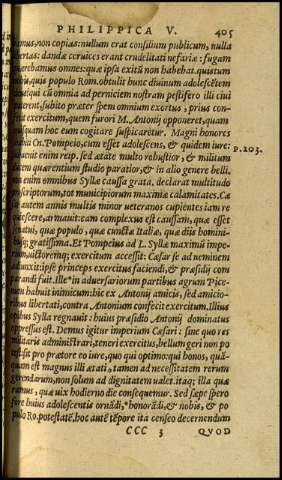 PHILIPPICA V. 405
bamus, non copias: nullum erat consilium publicum, nulla
libertas: dandæ ceruices erant crudelitati nefariæ: fugam
quærebamus omnes: quæ ipsa exitũ non habebat. quis tum
nobis, quis populo Rom. obtulit hunc diuinum adolescẽtem
deus? qui cũ omnia ad perniciem nostram pestifero illi ciui
paterent, subito præter spem omnium exortus, prius con-
fecit exercitum, quem furori M. Antonij opponeret, quam
quisquam hoc eum cogitare suspicaretur. Magni honores
habiti Cn. Pompeio, cum esset adolescens, & quidem iure:
p. 203.
subuenit enim reip. sed ætate multo robustior, & militum
ducem quærentium studio paratior, & in alio genere belli.
non enim omnibus Syllæ caussa grata, declarat multitudo
proscriptorum, tot municipiorum maximæ calamitates. Cæ
sar autem annis multis minor ueteranos cupientes iam re
quiescere, armauit: eam complexus est caussam, quæ esset
senatui, quæ populo, quæ cunctæ Italiæ, quæ diis homini-
busq; gratissima. Et Pompeius ad L. Syllæ maximũ impe-
rium, uictoremq; exercitum accessit: Cæsar se ad neminem
adiunxit: ipse princeps exercitus faciendi, & præsidij com
parandi fuit. Ille in aduersariorum partibus agrum Pice-
num habuit inimicum: hic ex Antonij amicis, sed amicio-
ribus libertati, contra Antonium confecit exercitum. Illius
opibus Sylla regnauit: huius præsidio Antonij dominatus
oppressus est. Demus igitur imperium Cæsari: sine quo res
militaris administrari, teneri exercitus, bellum geri non po
test. sit pro prætore eo iure, quo qui optimo: qui honos, quã-
quam est magnus illi ætati, tamen ad necessitatem rerum
gerendarum, non solum ad dignitatem ualet. itaq; illa quæ
ramus, quæ uix hodierno die consequemur. Sed sæpe spero
fore huius adolescentis ornãdi, * honorãdiq́;, & nobis, & po
pulo Ro. potestatẽ. hoc autẽ tẽpore ita censeo decernendum
CCC 3 QVOD